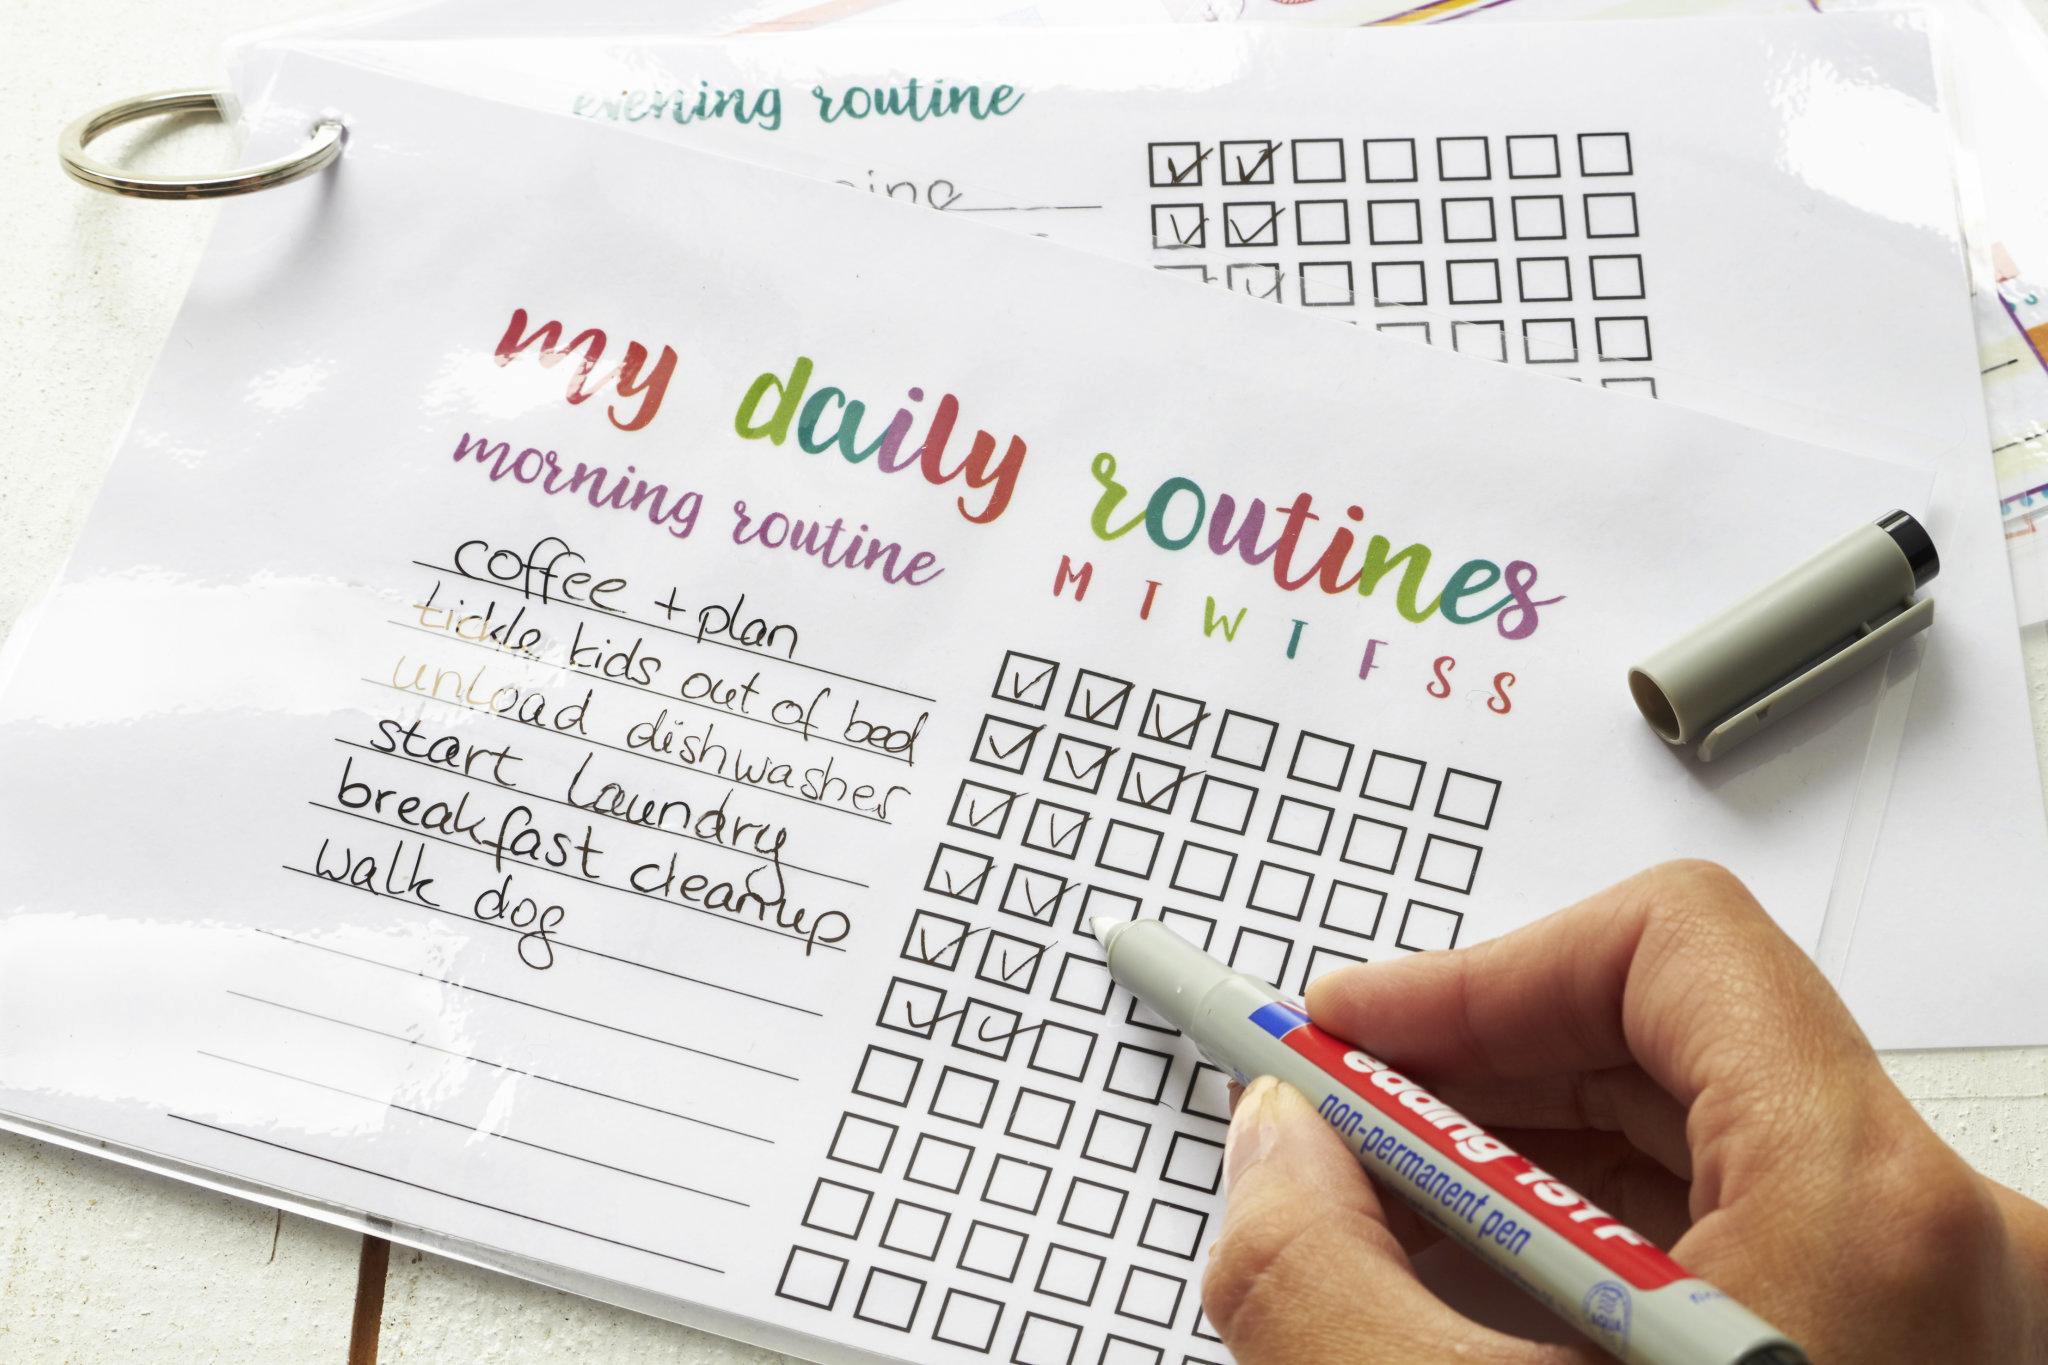 evening routine
my daily routines
morning routine
M T W T F S S
coffee + plan
tickle kids out of bed
unload dishwasher
start laundry
breakfast cleanup
walk dog
edding 151 F
non-permanent pen